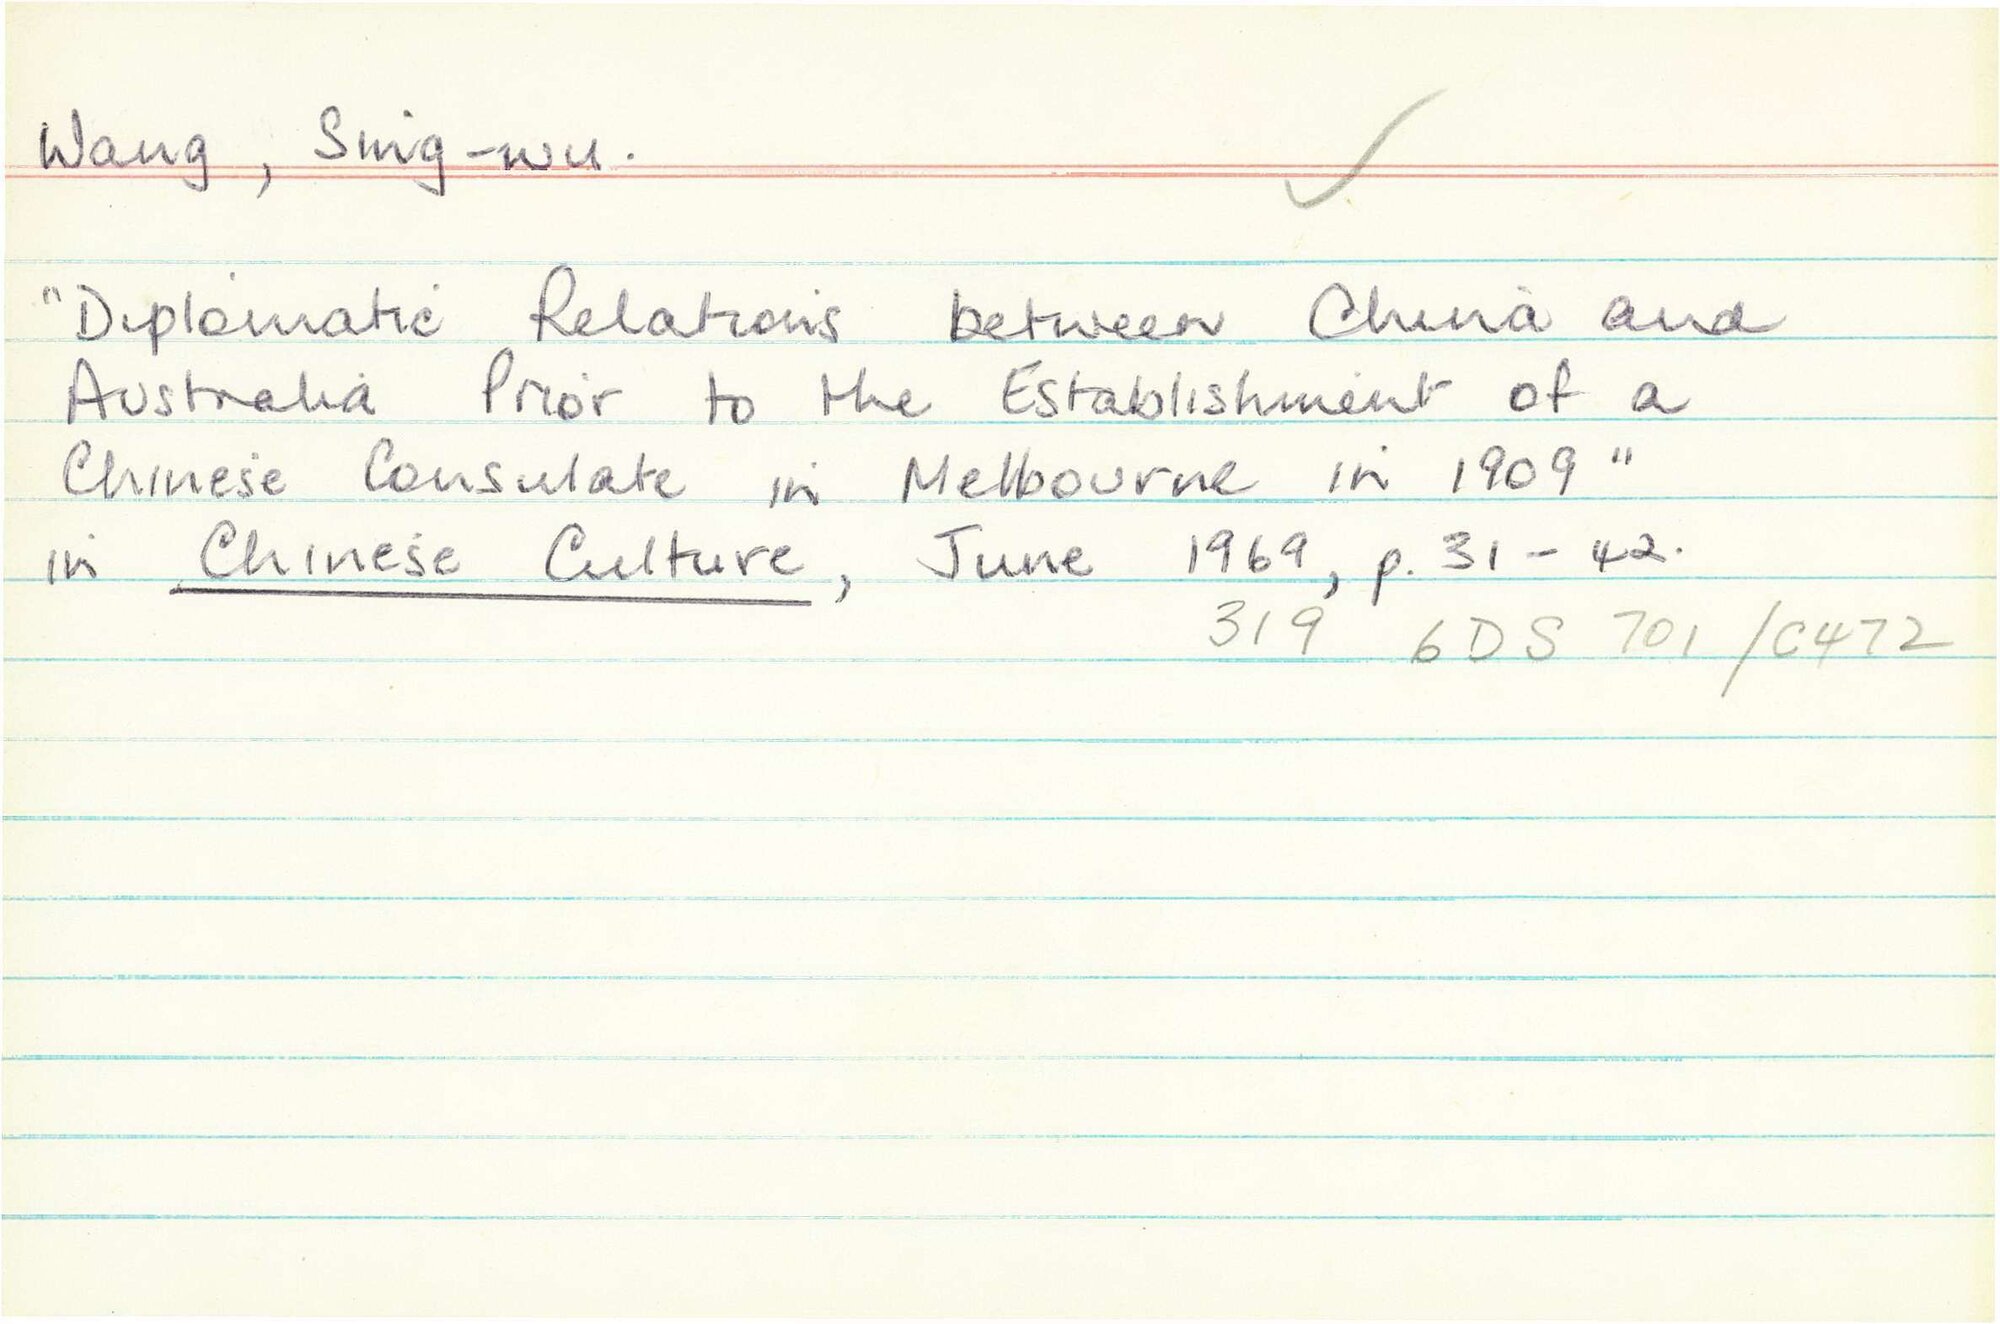 Wang, Sing-wu.
"Diplomatic Relations between China and
Australia Prior to the Establishment of a
Chinese Consulate in Melbourne in 1909"
in Chinese Culture, June 1969, p. 31-42.
319 6DS 701/C472